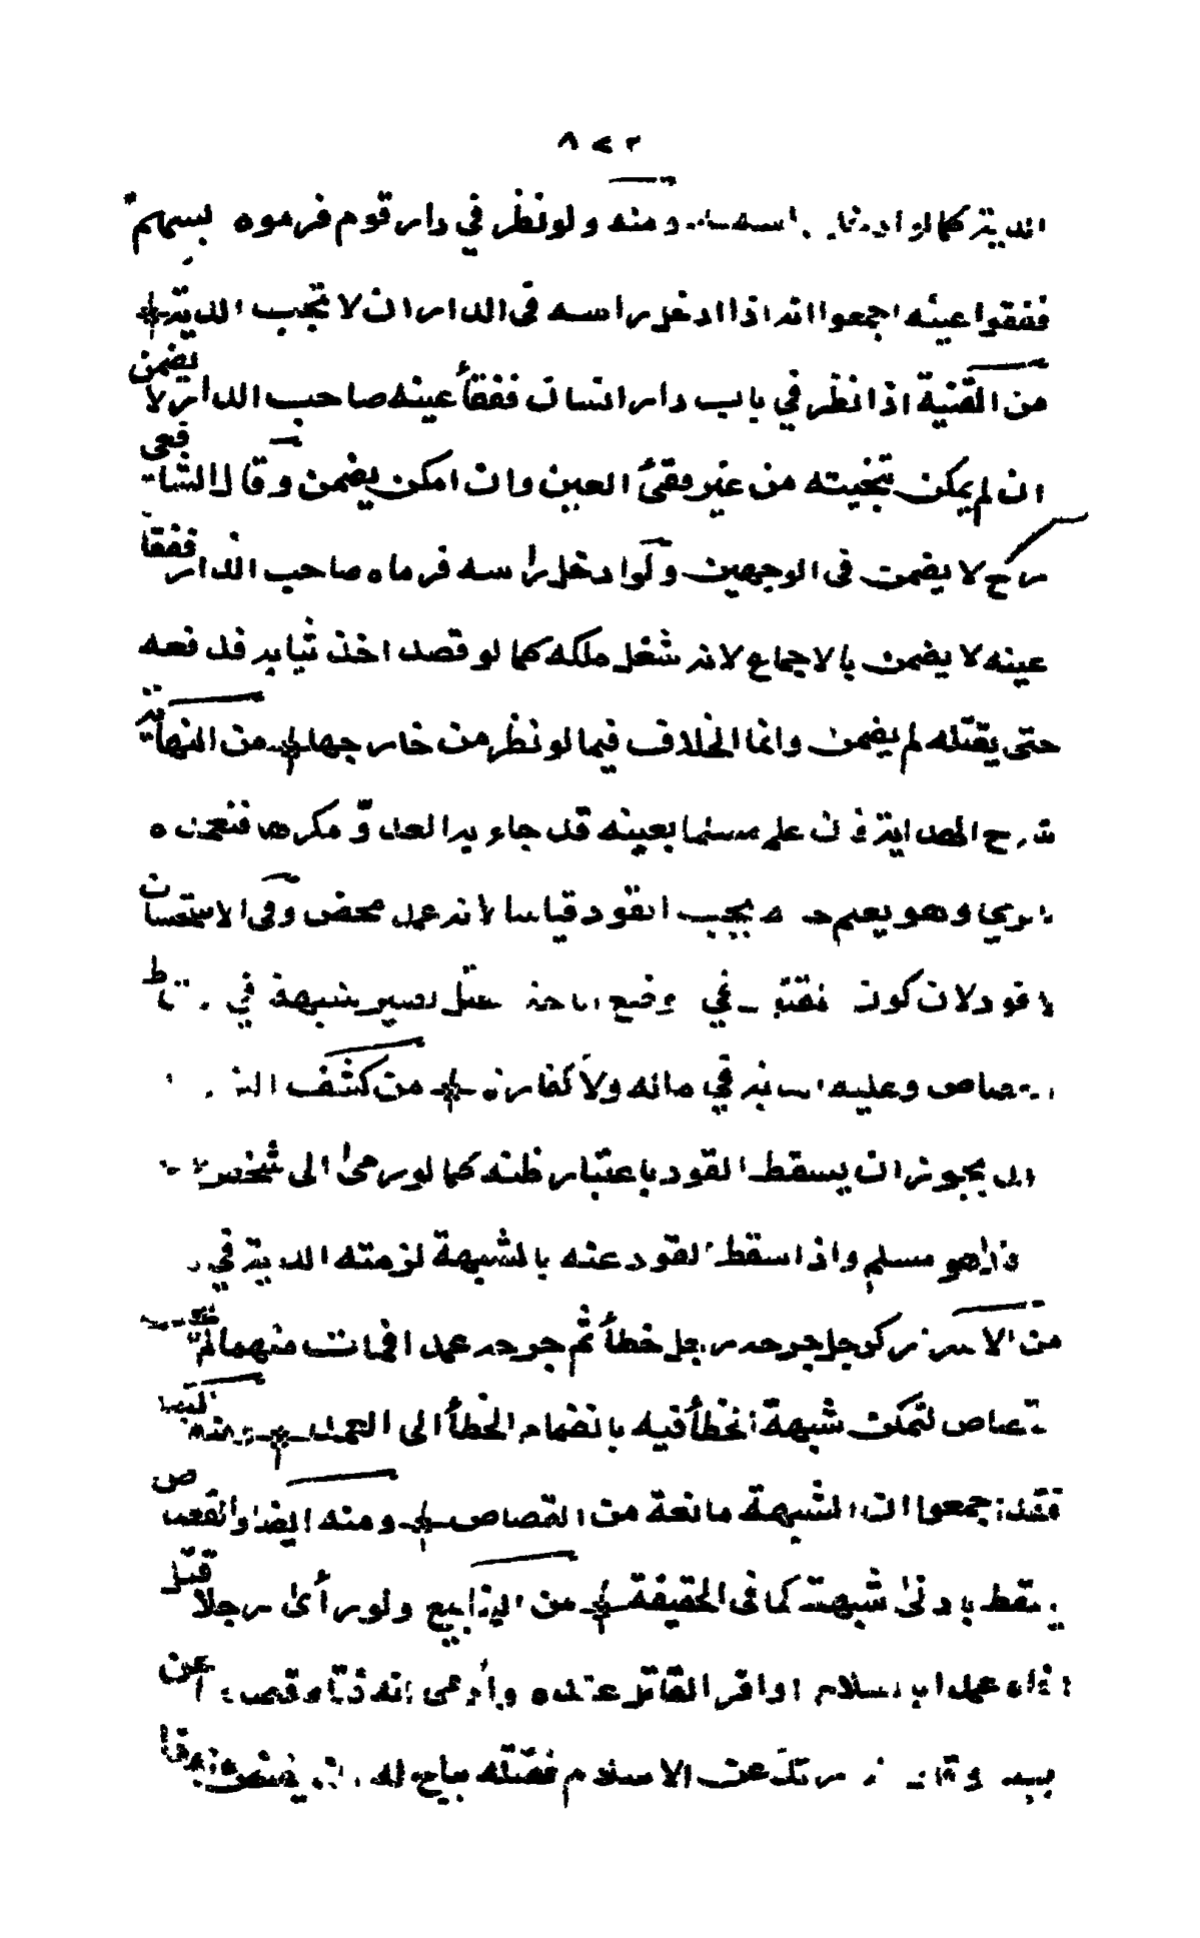 ٨٢٢
الدية كما لو ادخل راسه ومنه ولو نظر في دار قوم فرموه بسهم
ففقوا عينه اجمعوا انه اذا ادخل راسه فى الدار ان لا تجب الدية
من القنية اذا نظر في باب دار انسان ففقأ عينه صاحب الدار لا يضمن
ان لم يمكن تنحيته من غير فقئ العين وان امكن يضمن وقال الشافعى
رح لا يضمن فى الوجهين ولو ادخل راسه فرماه صاحب الدار ففقأ
عينه لا يضمن بالاجماع لانه شغل ملكه كما لو قصد اخذ ثيابه فدفعه
حتى يقتله لم يضمن وانما الخلاف فيما لو نظر من خارجها من النهاية
شرح الهداية فان علم مسلما بعينه قد جاء به العدو مكرها فتعمده
بالرمي وهو يعلم حاله يجب القود قياسا لانه عمد محض وفى الاستحسان
لا قود لان كون في موضع اباحة القتل يصير شبهة في
القصاص وعليه الدية في ماله ولا كفارة من كشف
يجوز ان يسقط القود باعتبار ظنه كما لو رمى الى شخص
فاذا هو مسلم واذا سقط القود عنه بالشبهة لزمته الدية في
من كرجل جرحه رجل خطأ ثم جرحه عمدا فمات منهما لم
قصاص لتمكن شبهة الخطأ فيه بانضمام الخطأ الى العمد ومنه
فقد اجمعوا ان الشبهة مانعة من القصاص ومنه ايضا والقصاص
يسقط بادنى شبهة كما فى الحقيقة من الينابيع ولو رأى رجلا قتل
عمدا او اقر القاتل عنده وادعى انه قتله قصاصا عن
مرتد عن الاسلام فقتله